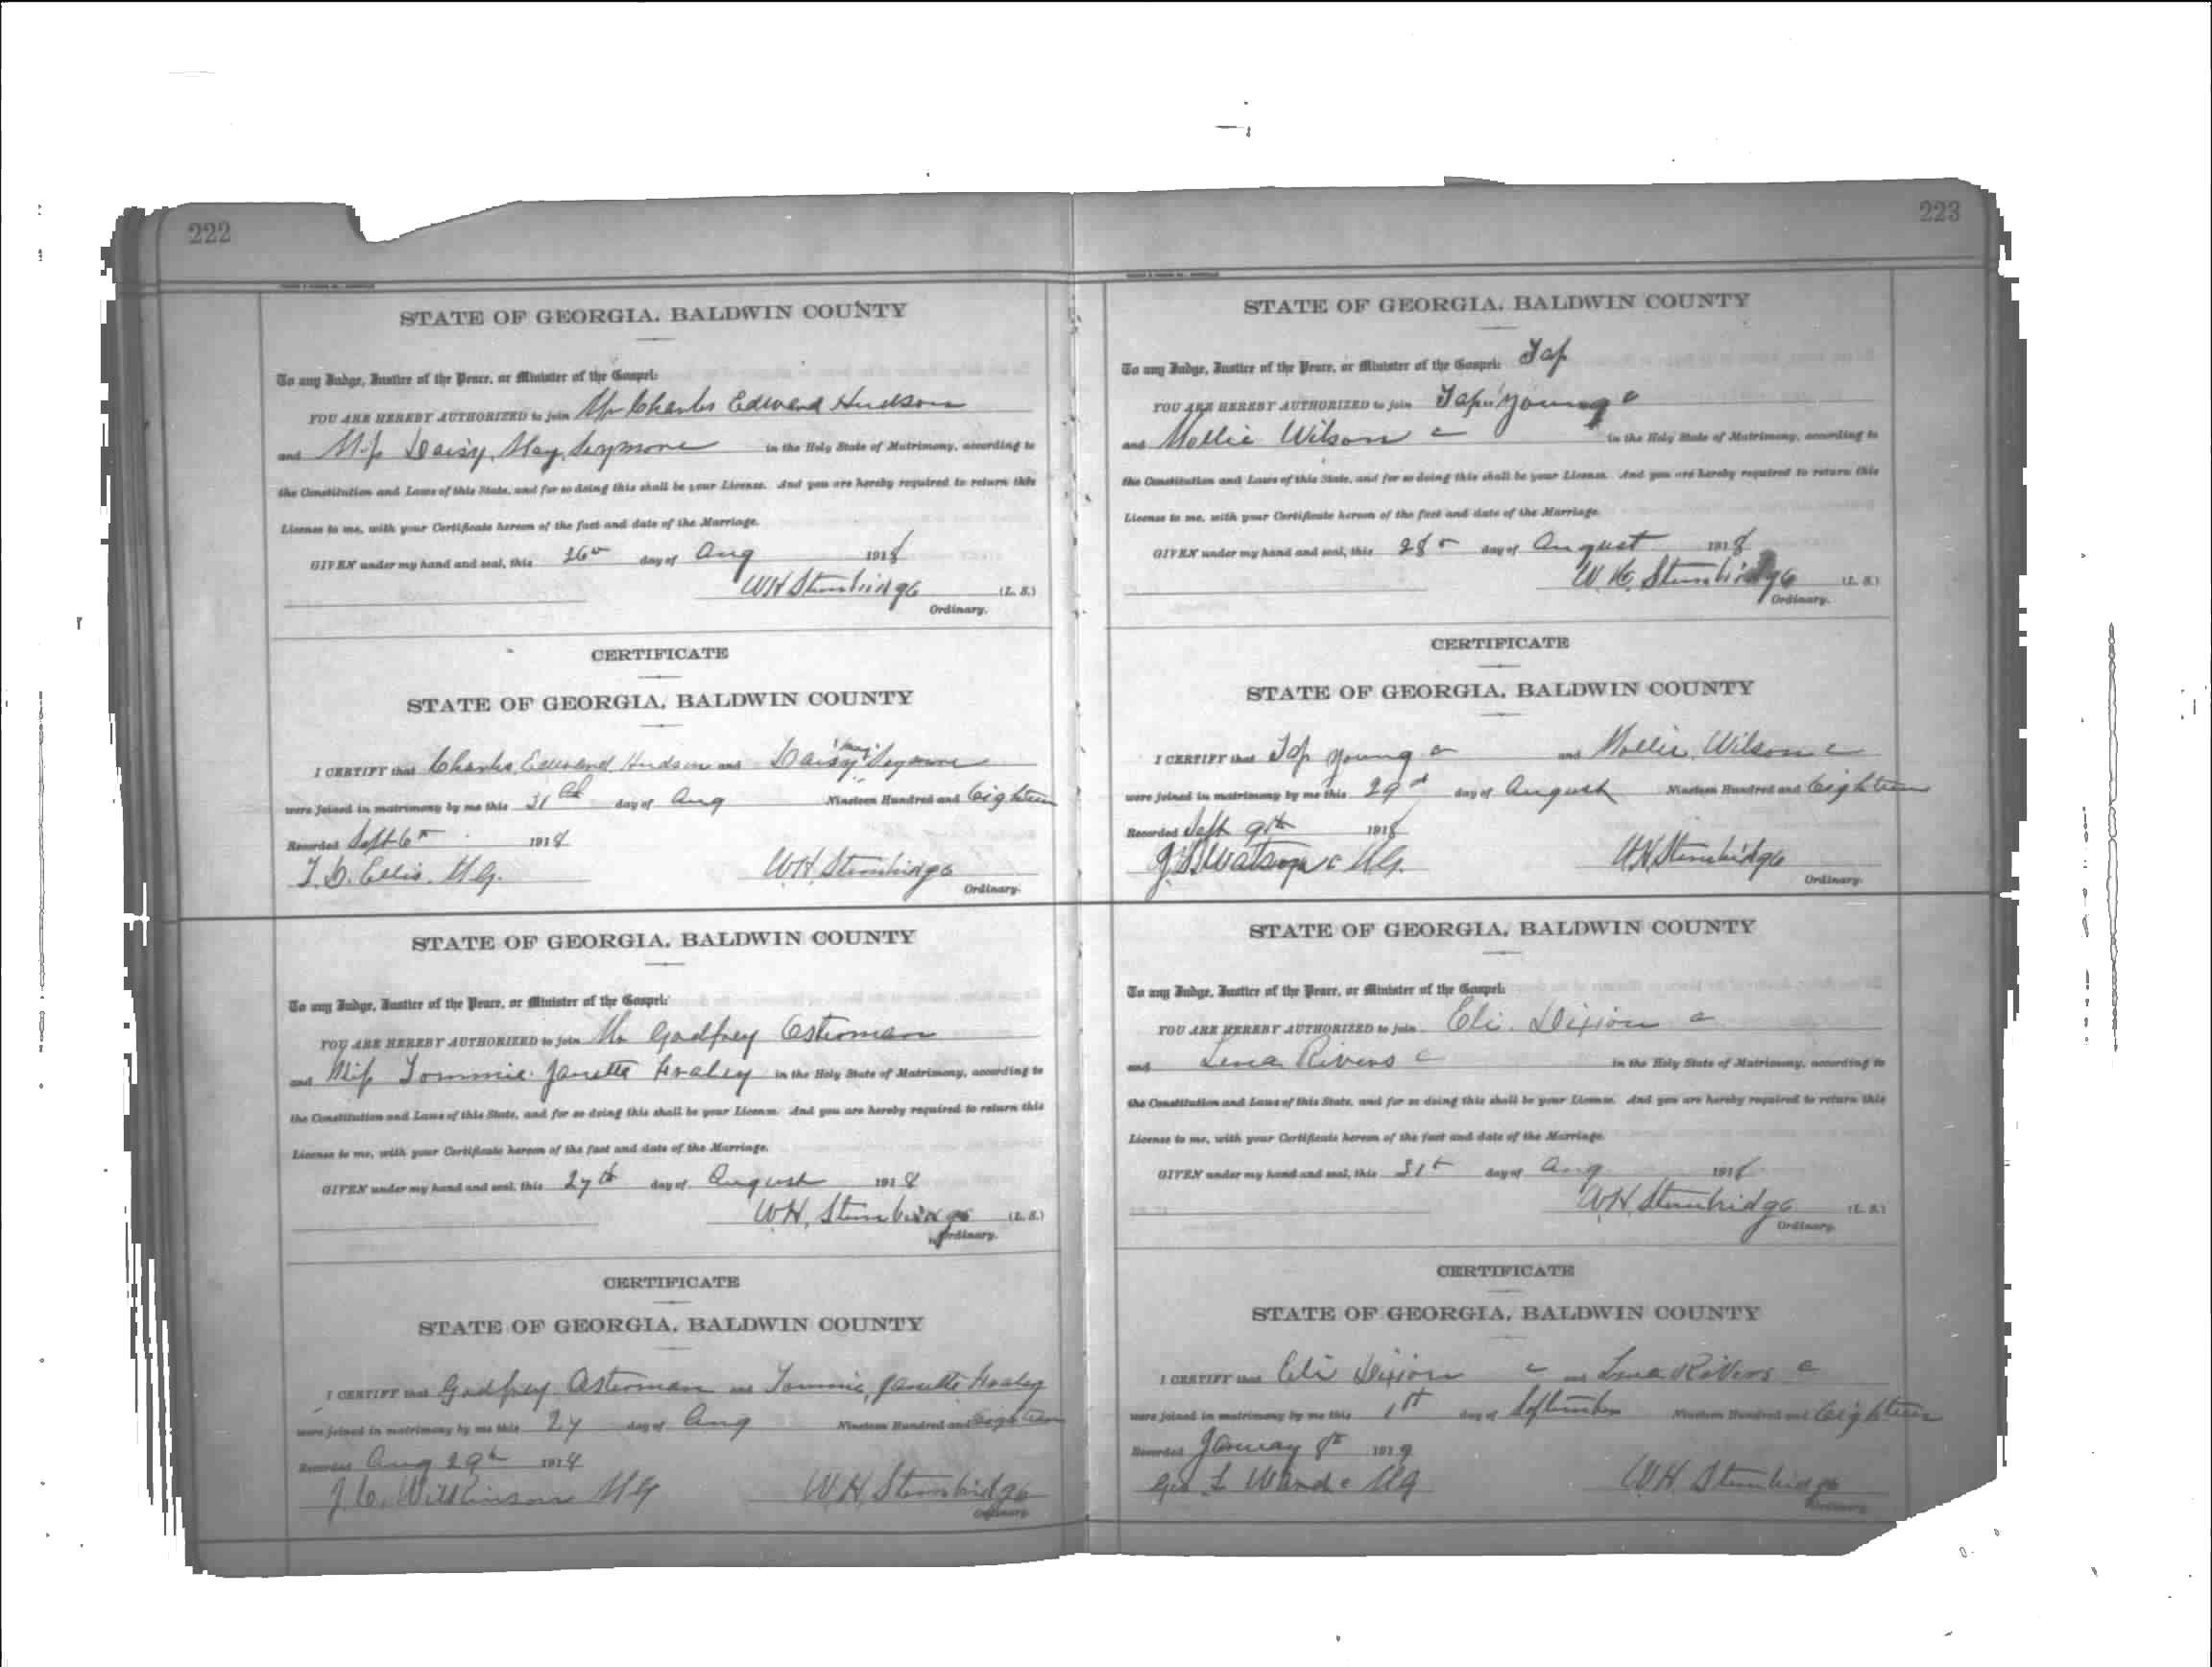 222
STATE OF GEORGIA, BALDWIN COUNTY
To any Judge, Justice of the Peace, or Minister of the Gospel:
YOU ARE HEREBY AUTHORIZED to join Mr Charles Edward Hudson
and Miss Daisy May Seymore in the Holy State of Matrimony, according to
the Constitution and Laws of this State, and for so doing this shall be your License. And you are hereby required to return this
License to me, with your Certificate hereon of the fact and date of the Marriage.
GIVEN under my hand and seal, this 26th day of Aug 1918
WH Stembridge (L. S.)
Ordinary.
CERTIFICATE
STATE OF GEORGIA, BALDWIN COUNTY
I CERTIFY that Charles Edward Hudson and Daisy May Seymore
were joined in matrimony by me this 31st day of Aug Nineteen Hundred and Eighteen
Recorded Sept 6th 1918
Ellis M.G. W.H. Stembridge
Ordinary.
STATE OF GEORGIA, BALDWIN COUNTY
To any Judge, Justice of the Peace, or Minister of the Gospel:
YOU ARE HEREBY AUTHORIZED to join Mr Godfrey Osterman
and Miss Tommie Janette Fraley in the Holy State of Matrimony, according to
the Constitution and Laws of this State, and for so doing this shall be your License. And you are hereby required to return this
License to me, with your Certificate hereon of the fact and date of the Marriage.
GIVEN under my hand and seal, this 27th day of August 1918
W.H. Stembridge (L. S.)
Ordinary.
CERTIFICATE
STATE OF GEORGIA, BALDWIN COUNTY
I CERTIFY that Godfrey Osterman and Tommie Janette Fraley
were joined in matrimony by me this 27 day of Aug Nineteen Hundred and Eighteen
Recorded Aug 29th 1918
J.C. Wilkinson MG W.H. Stembridge
Ordinary.
223
STATE OF GEORGIA, BALDWIN COUNTY
To any Judge, Justice of the Peace, or Minister of the Gospel: Tap
YOU ARE HEREBY AUTHORIZED to join Tap Young c
and Mollie Wilson c in the Holy State of Matrimony, according to
the Constitution and Laws of this State, and for so doing this shall be your License. And you are hereby required to return this
License to me, with your Certificate hereon of the fact and date of the Marriage.
GIVEN under my hand and seal, this 28th day of August 1918
W.H. Stembridge (L. S.)
Ordinary.
CERTIFICATE
STATE OF GEORGIA, BALDWIN COUNTY
I CERTIFY that Tap Young c and Mollie Wilson c
were joined in matrimony by me this 29th day of August Nineteen Hundred and Eighteen
Recorded Sept 9th 1918
Watson c M.G. W.H. Stembridge
Ordinary.
STATE OF GEORGIA, BALDWIN COUNTY
To any Judge, Justice of the Peace, or Minister of the Gospel:
YOU ARE HEREBY AUTHORIZED to join Eli Dixion c
and Lena Rivers c in the Holy State of Matrimony, according to
the Constitution and Laws of this State, and for so doing this shall be your License. And you are hereby required to return this
License to me, with your Certificate hereon of the fact and date of the Marriage.
GIVEN under my hand and seal, this 31st day of Aug 1918
W.H. Stembridge (L. S.)
Ordinary.
CERTIFICATE
STATE OF GEORGIA, BALDWIN COUNTY
I CERTIFY that Eli Dixion c and Lena Rivers c
were joined in matrimony by me this 1st day of September Nineteen Hundred and Eighteen
Recorded January 8th 1919
Geo L Ward c MG W.H. Stembridge
Ordinary.